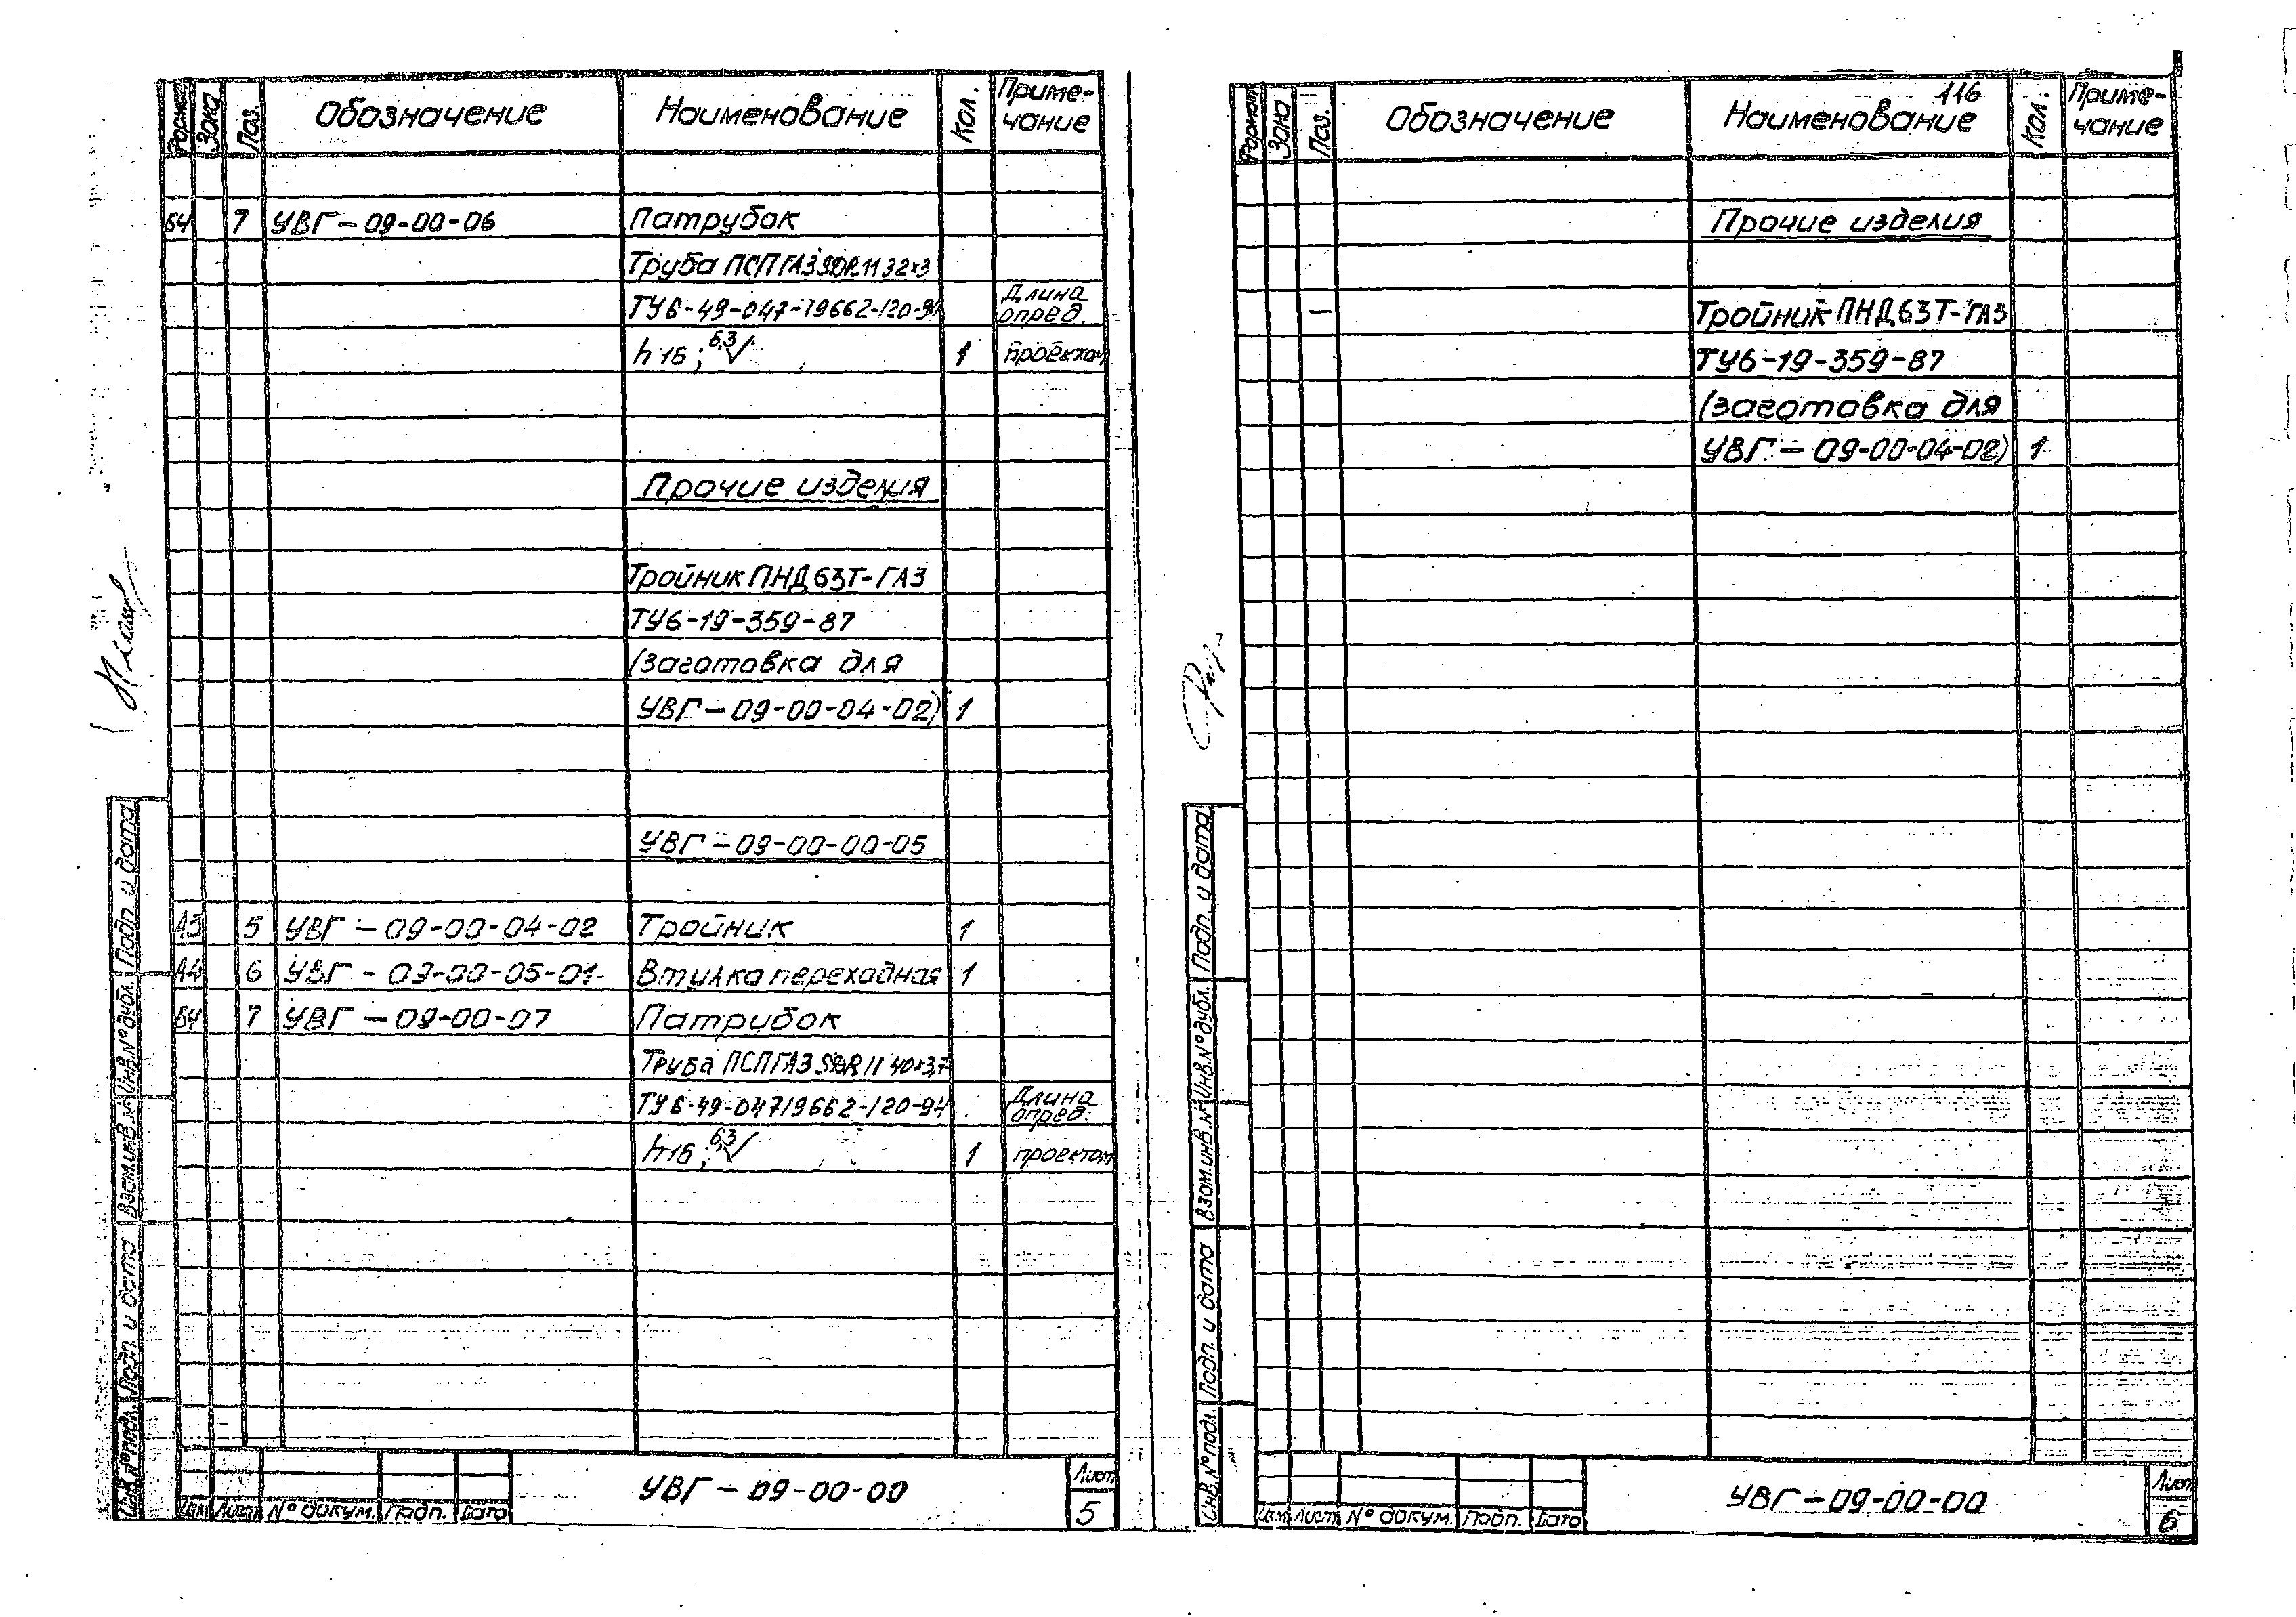 Формат Зона Поз. Обозначение Наименование Кол. Приме-
чание
БЧ 7 УВГ-09-00-06 Патрубок
Труба ПСП ГАЗ SDR 11 32×3
ТУ6-49-047-19662-120-94 Длина
опред.
h16; 6,3√ 1 проектом
Прочие изделия
Тройник ПНД 63Т-ГАЗ
ТУ6-19-359-87
(заготовка для
УВГ-09-00-04-02) 1
УВГ-09-00-00-05
А3 5 УВГ-09-00-04-02 Тройник 1
А4 6 УВГ-09-00-05-01 Втулка переходная 1
БЧ 7 УВГ-09-00-07 Патрубок
Труба ПСП ГАЗ SDR 11 40×3,7
ТУ6-49-04719662-120-94 Длина
опред.
h16; 6,3√ 1 проектом
Подп. и дата
Инв. № дубл.
Взам. инв. №
Подп. и дата
Инв. № подл.
Изм Лист № докум. Подп. Дата
УВГ-09-00-00
Лист
5
116
Формат Зона Поз. Обозначение Наименование Кол. Приме-
чание
Прочие изделия
— Тройник ПНД 63Т-ГАЗ
ТУ6-19-359-87
(заготовка для
УВГ-09-00-04-02) 1
Подп. и дата
Инв. № дубл.
Взам. инв. №
Подп. и дата
Инв. № подл.
Изм Лист № докум. Подп. Дата
УВГ-09-00-00
Лист
6